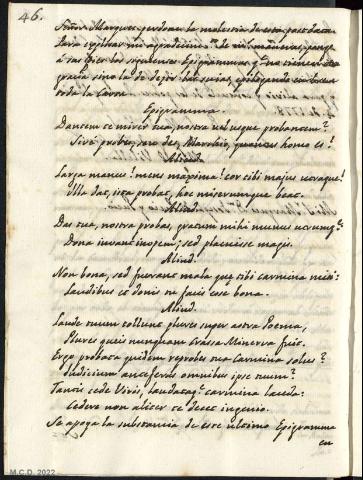 46.
Señor Marques, perdone la molestia de esta
para explicar mi agradecim.to
a sus pies los siguientes Epigrammas q.e no tienen otra
gracia sino la de dejar
toda la Carta.
Epigramma.
Dantem te miror tua, nostra vel usque probantem?
Sive probes, seu des, Marchio, quantus homo es!
Aliud.
Larga manus! mens maxima! cor tibi majus utraque!
Illa dat, ista probat, hoc miserumque beat.
Aliud.
Das tua, nostra probas, gratum mihi munus utrumq.e
Dona juvant inopem; sed placuisse magis.
Aliud.
Non bona, sed fuerant mala quae tibi carmina misi:
Laudibus et donis tu facis esse bona.
Aliud.
Laude tuum tollunt plures super astra Poema,
Plures queis nunquam crassa Minerva fuit.
Ergo probata quidem reprobes tua Carmina solus?
Judicium anteferes omnibus ipse tuum?
Tantis cede Viris, laudataq.e carmine lauda:
Cedere non aliter te decet ingenio.
Se apoya la substancia de este ultimo Epigramma
en
M.C.D. 2022